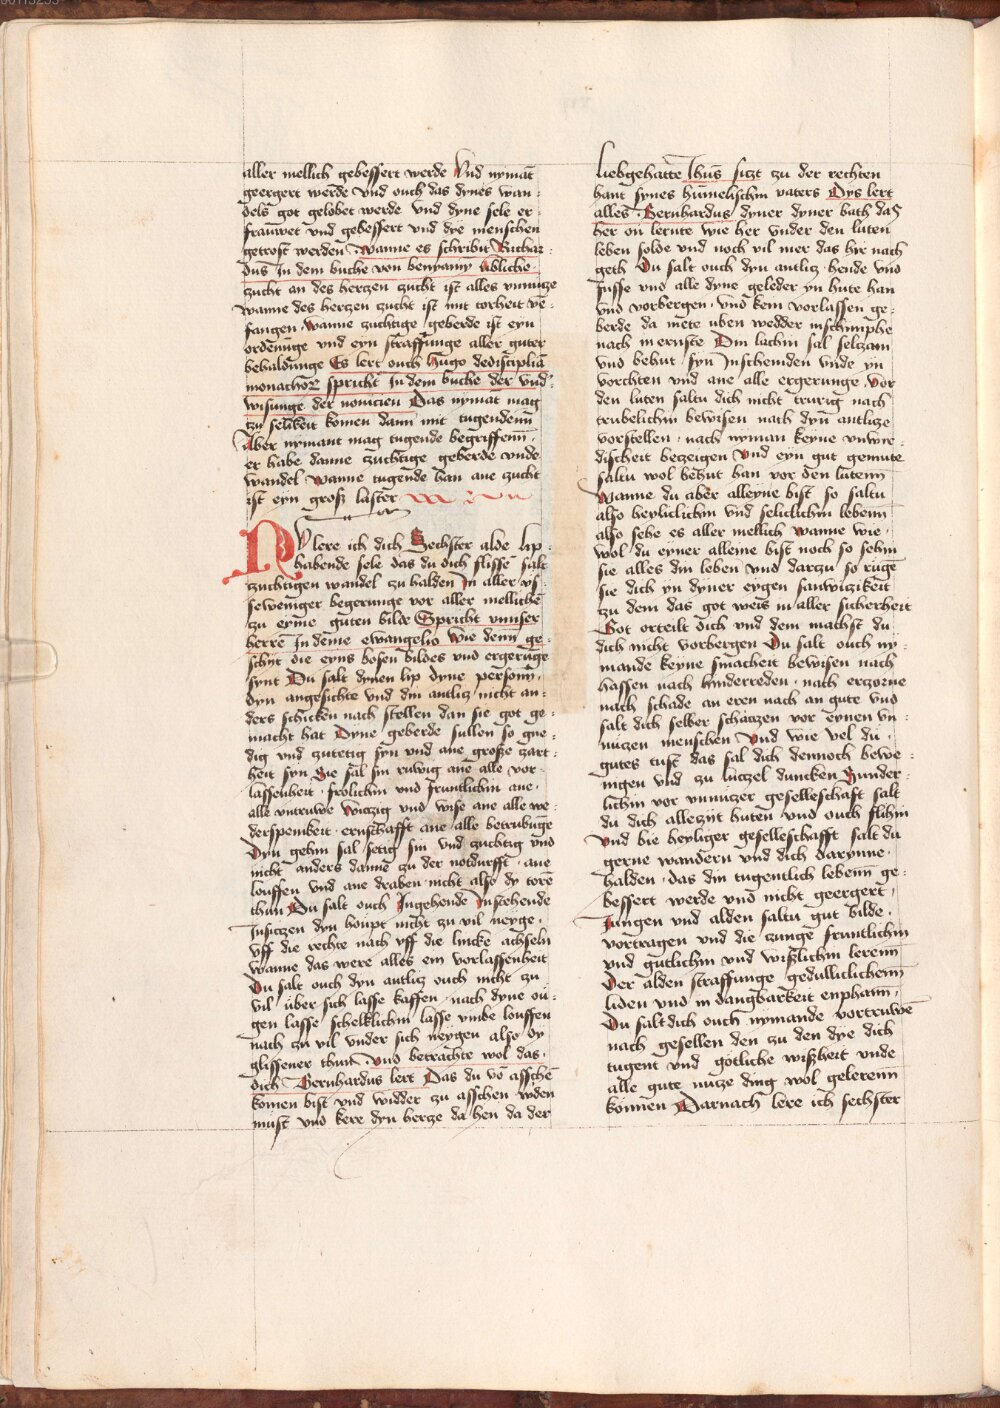 aller mellich gebessert werde Vnd nymāt
geergert werde vnd ouch das dynes wan-
dels got gelobet werde vnd dyne sele er-
frauwet vnd gebessert vnd dye menschen
getrost werden Wanne es schribit Richar-
dus In dem buche von benyamȳ Abliche
zucht an des herzen zucht ist alles vnnutze
Wanne des herzen zucht ist mit torheit ve-
fangen Wanne zuchtige geberde ist eyn
ordenūge vnd eyn straffunge aller guter
behaldunge Es lert ouch Hugo de disciplīa
monachoꝝ spricht In dem buche der vnd-
wisunge der nouicien Das nymāt mag
zu selikeit komen dann mit tugendenn
Aber nymant mag tugende begriffenn
er habe danne zuchtige geberde vnde
wandel Wanne tugende han ane zucht
ist eyn groß laster
NV lere ich dich Sechster alde lip-
habende sele das du dich flisse salt
zuchtigen wandel zu halden In aller vs-
seweniger begerunge vor aller mellichē
zu eyme guten bilde Spricht vnnser
herre In deme ewangelio Wie denn ge-
schyt die eyns bosen bildes vnd ergerūge
synt Du salt dynen lip dyne persony
dyn angesichte vnd din antliz nicht an-
ders schicken nach stellen dan sie got ge-
macht hat Dyne geberde sullen so gne-
dig vnd zutetig syn vnd ane große zart-
heit syn Sie sal sin ruwig ane alle vor-
lassenheit frolichin vnd fruntlichin ane
alle vntruwe Witzig vnd wise ane alle we-
derspenikeit ernsthafft ane alle betrubūge
Dyn gehin sal setig sin vnd zuchtig vnd
nicht anders danne zu der notdurfft ane
louffen vnd ane draben nicht also dy torē
thun Du salt ouch Ingehende Instehende
Insitzen dyn houpt nicht zu vil neyge
vff die rechte nach vff die lincke achseln
Wanne das were alles ein vorlassenheit
Du salt ouch dyn antliz ouch nicht zu
vil über sich lasse kaffen nach dyne ou-
gen lasse schelklichin lasse vmbe louffen
nach zu vil vnder sich neygen also dy
glissener thun vnd betrachte wol das
dich Bernhardus lert Das du vō asschē
komen bist vnd widder zu asschen wden
must vnd kere dyn herze da hen da der
liebgehatte Ihūs sitzt zu der rechten
hant synes hūmelischin vaters Dys lert
alles Bernhardus dyner dyner bath das
her on lernte wie her vnder den luten
leben solde vnd noch vil mer das hye nach
geth Du salt ouch dyn antliz hende vnd
fusse vnd alle dyne geleder yn hute han
vnd vorbergen vnd kein vorlassen ge-
berde da mete uben wedder in schimphe
nach in ernste Din lachin sal seltzam
vnd behut syn Inschemden vnde yn
vorchten vnd ane alle ergerunge Vor
den luten saltu dich nicht trurig nach
trubelichin bewisen nach dyn antlitze
vorstellen nach nyman keyne vnwre-
discheit bezeigen Vnd eyn gut gemute
saltu wol behut han vor den lutenn
Wanne du aber alleyne bist so saltu
also heyliclichin vnd seliclichin lebenn
also sehe es aller mellich Wanne wie
wol du eyner alleine bist noch so sehin
sie alles din leben vnd darzu so rūgē
sie dich yn dyner eygen samwizikeit
zu dem das got weis in aller sicherheit
Got orteilt dich vnd dem machst du
dich nicht vorbergen Du salt ouch ny-
mande keyne smacheit bewisen nach
hassen nach hinderreden nach erczorne
nach schade an eren nach an gute Vnd
salt dich selber schatzen vor eynen vn-
nutzen menschen Vnd wie vel du
gutes tust das sal dich dennoch bewe-
nigen vnd zu lutzel duncken Sunder-
lichin vor vnnutzer geselleschaft salt
du dich allezyt huten vnd ouch flihin
Vnd bie heyliger geselleschafft salt du
gerne wandern vnd dich darynne
halden das din tugentlich lebenn ge-
bessert werde vnd nicht geergert
Jungen vnd alden saltu gut bilde
vortragen vnd die zunge fruntlichin
vnd gutlichin vnd wißlichin lerenn
Der alden straffunge gedulliclichenn
liden vnd in dangbarkeit enphann
Du salt dich ouch nymande vortruwē
nach gesellen den zu den dye dich
tugent vnd gotliche wißheit vnde
alle gute nutze ding wol gelerenn
konnen Darnach lere ich sechster